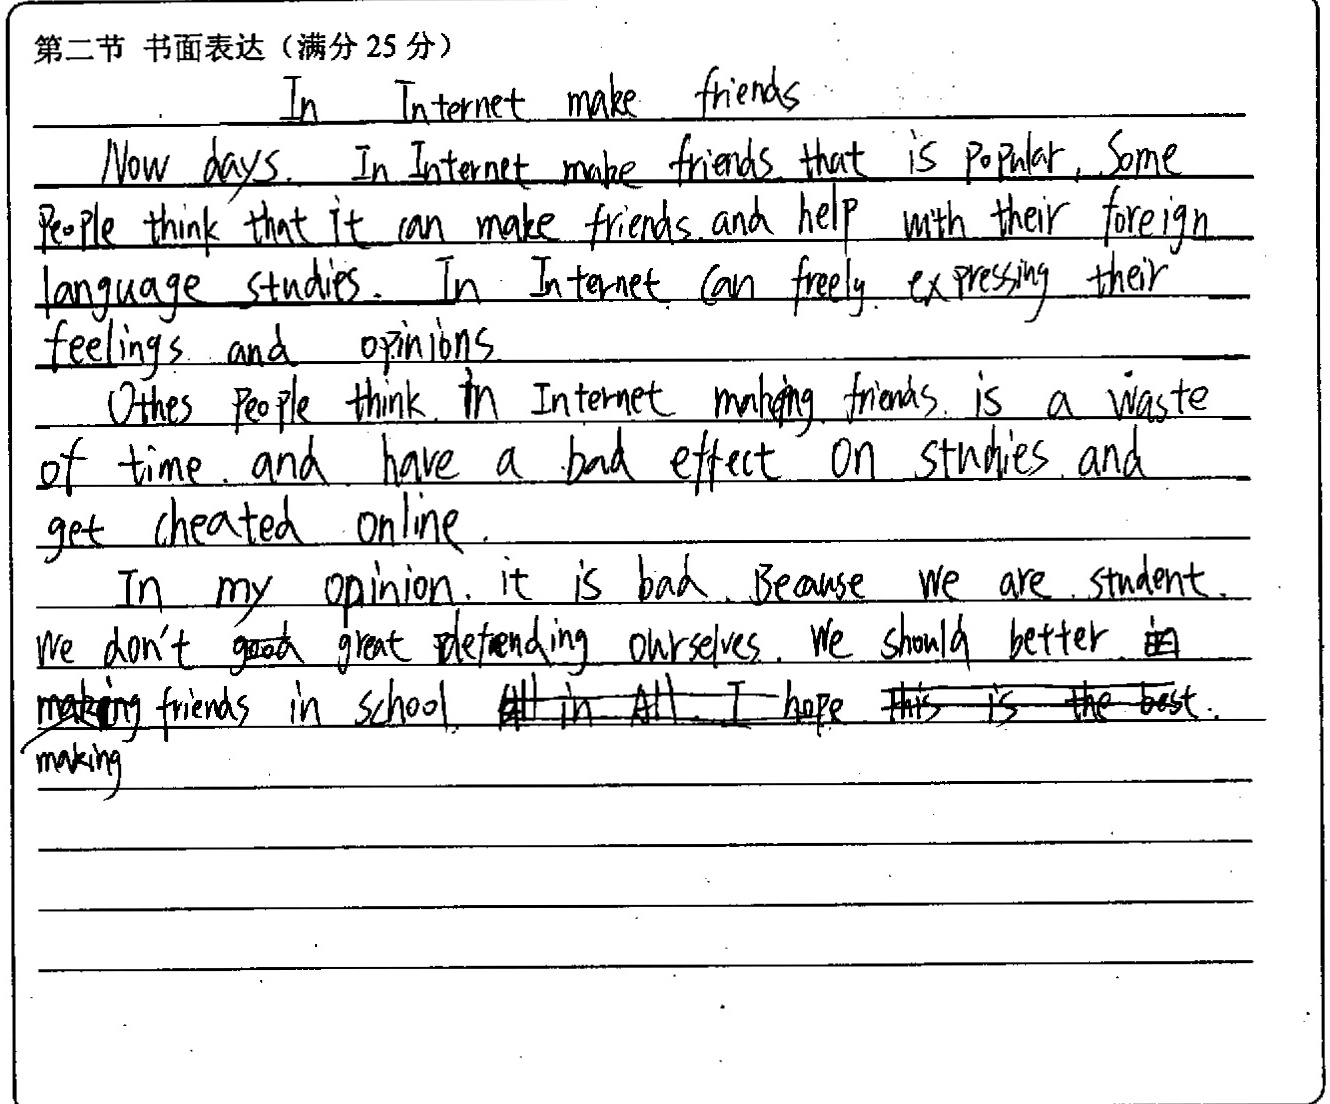 第二节 书面表达（满分 25 分）
In Internet make friends
Now days. In Internet make friends that is popular, Some
People think that it can make friends and help with their foreign
language studies. In Internet can freely expressing their
feelings and opinions
Othes People think in Internet making friends is a waste
of time and have a bad effect on studies and
get cheated online.
In my opinion. it is bad. Because we are student.
We don't good great defending ourselves. We should better
making friends in school. All in All I hope this is the best.
making